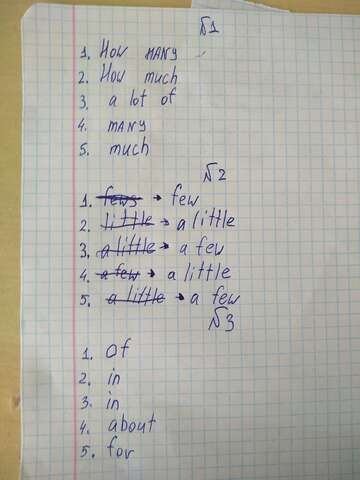 №1
1. How MANY
2. How much
3. a lot of
4. MANY
5. much
№2
1. fews → few
2. little → a little
3. a little → a few
4. a few → a little
5. a little → a few
№3
1. Of
2. in
3. in
4. about
5. for